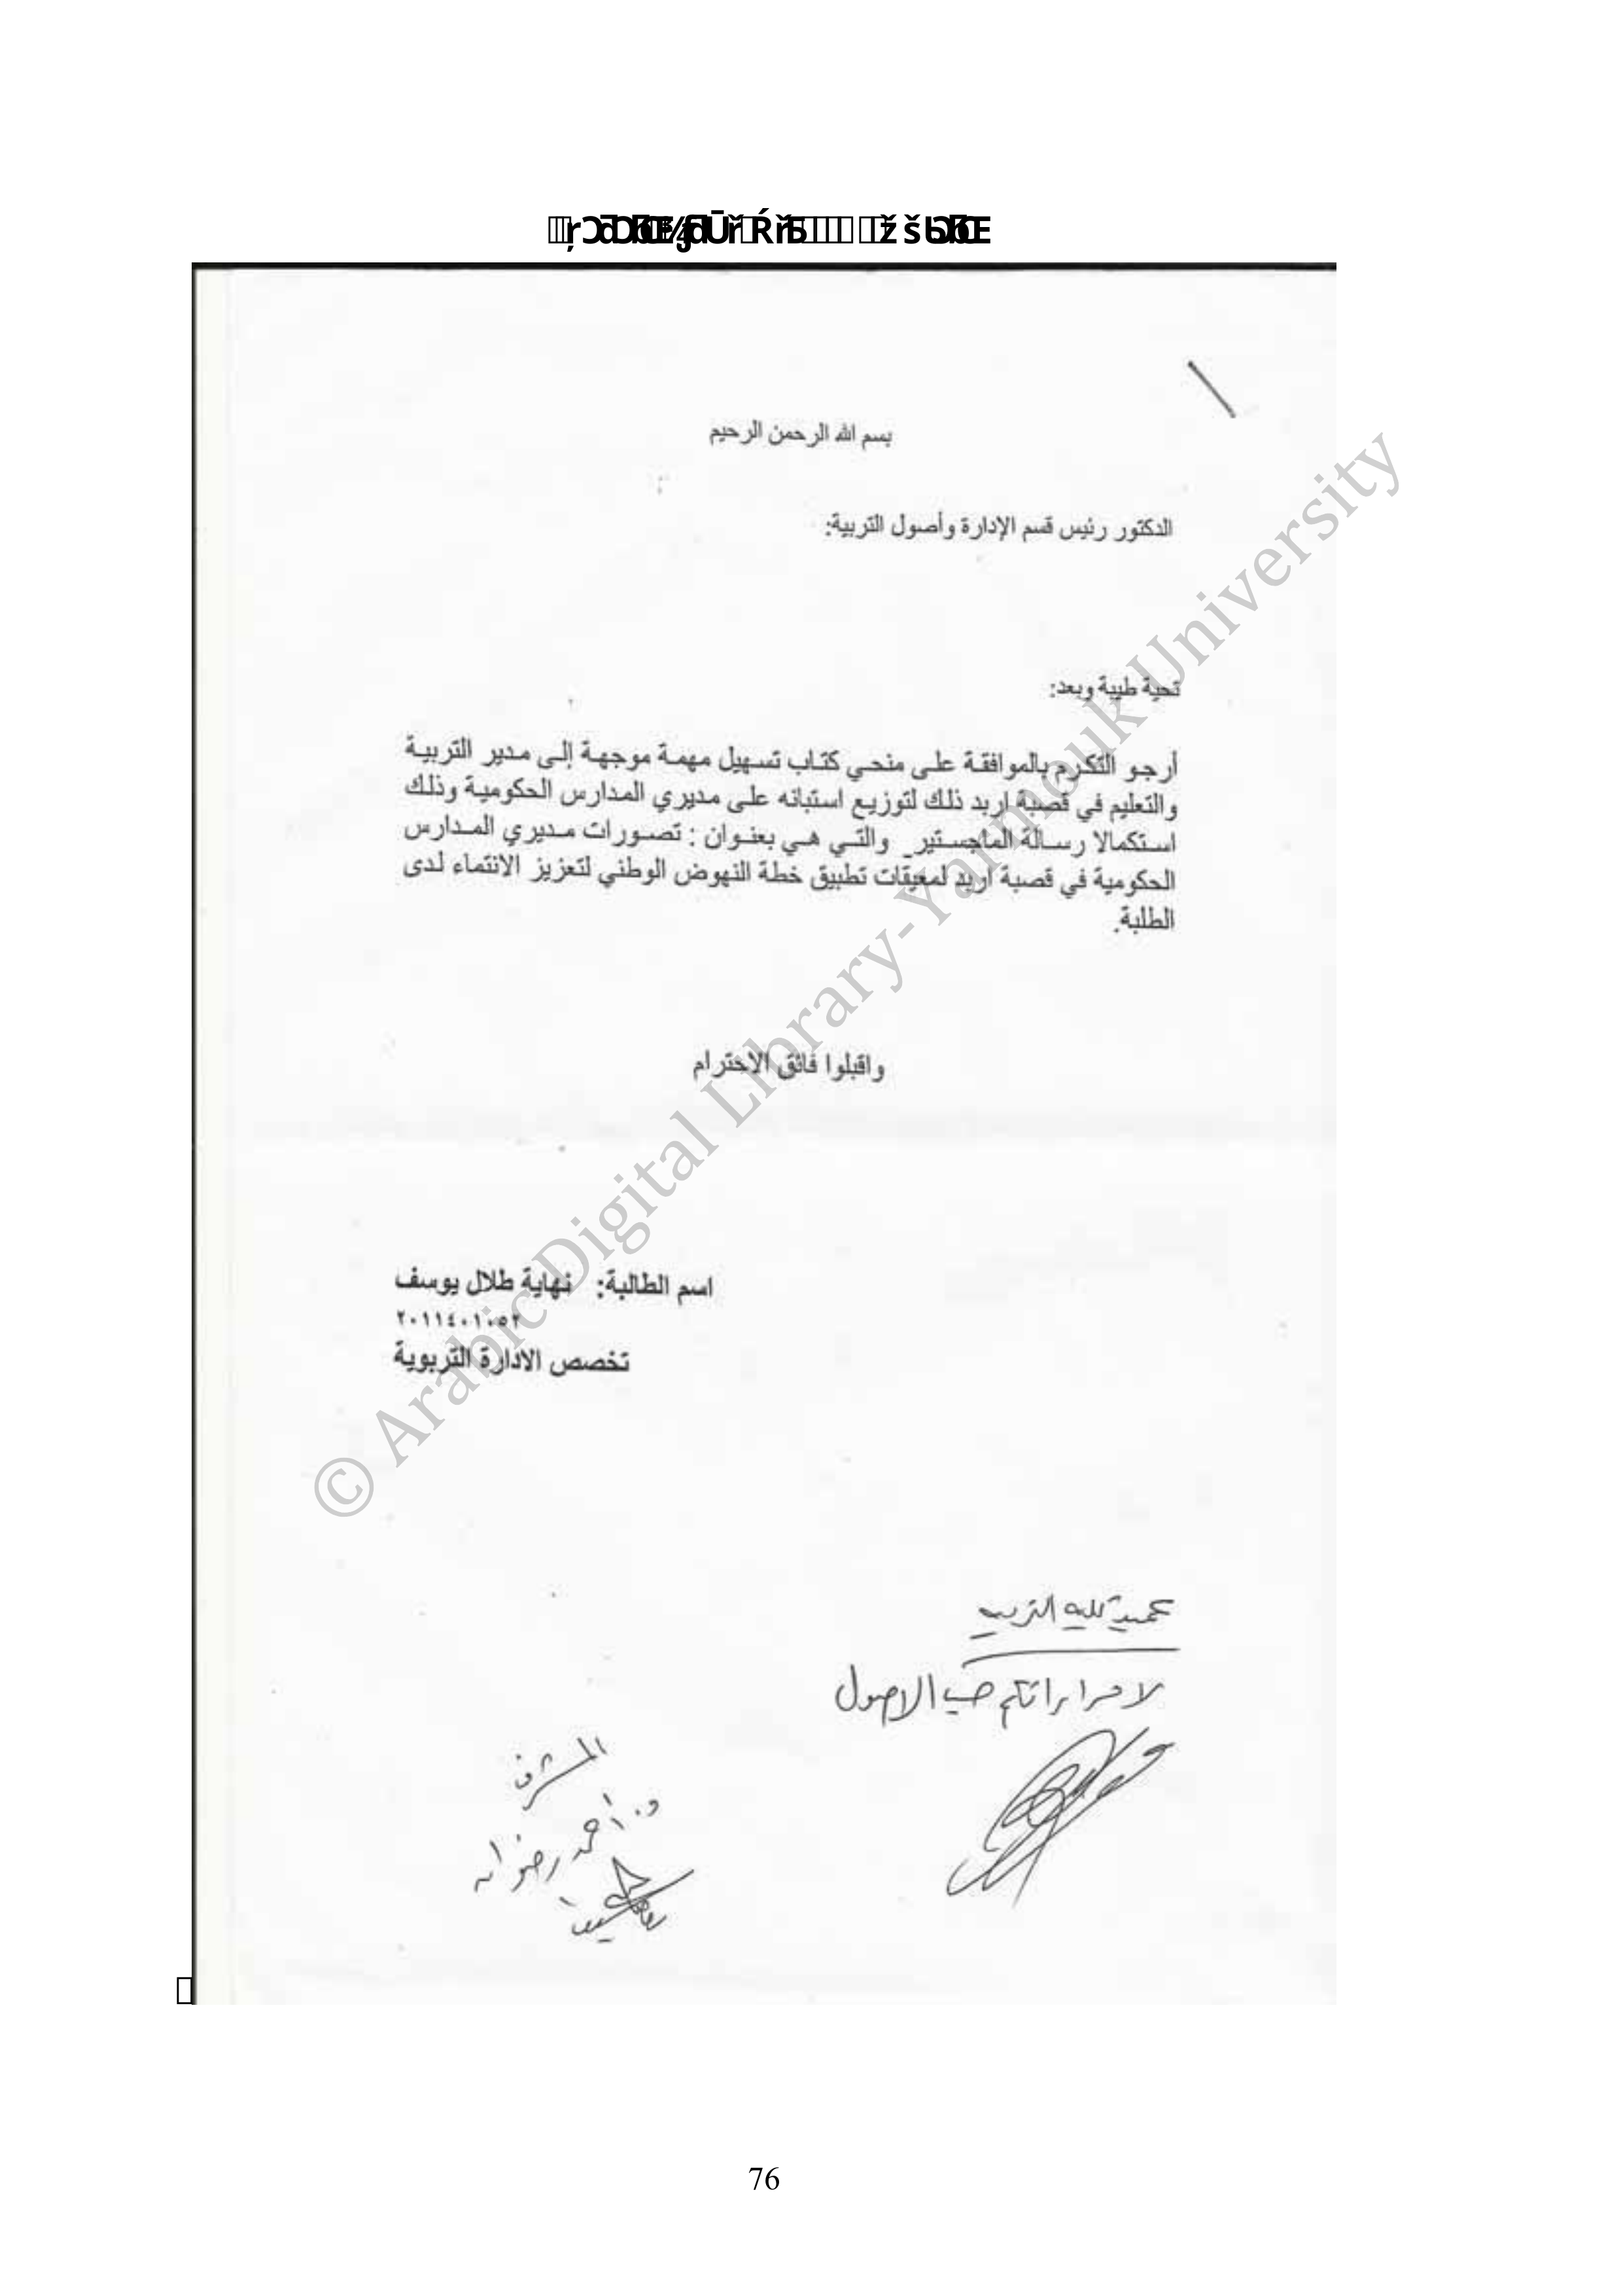 بسم الله الرحمن الرحيم
الدكتور رئيس قسم الإدارة وأصول التربية:
تحية طيبة وبعد:
أرجو التكرم بالموافقة على منحي كتاب تسهيل مهمة موجهة إلى مدير التربية
والتعليم في قصبة اربد ذلك لتوزيع استبانه على مديري المدارس الحكومية وذلك
استكمالا رسالة الماجستير والتي هي بعنوان : تصورات مديري المدارس
الحكومية في قصبة اربد لمعيقات تطبيق خطة النهوض الوطني لتعزيز الانتماء لدى
الطلبة.
واقبلوا فائق الاحترام
اسم الطالبة: نهاية طلال يوسف
٢٠١١٤٠١٠٥٢
تخصص الادارة التربوية
عميد كلية التربية
الاصول
المشرف
د. أحمد رضوان
© Arabic Digital Library-Yarmouk University
76